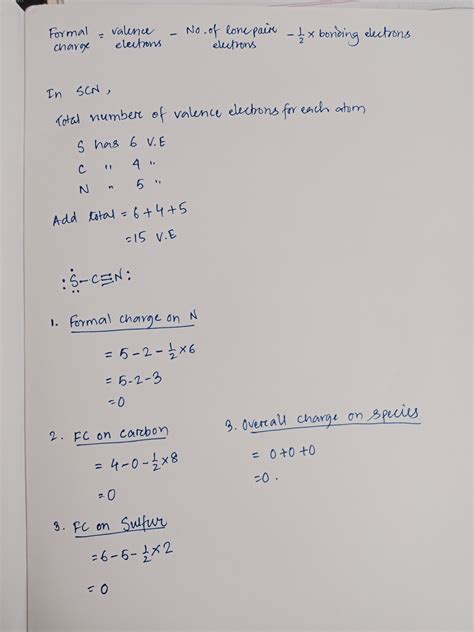 Formal charge = valence electrons - No. of lone pair electrons - 1/2 × bonding electrons
In SCN,
Total number of valence electrons for each atom
S has 6 V.E
C " 4 "
N " 5 "
Add total = 6+4+5
=15 V.E
:S-C≡N:
1. Formal charge on N
= 5-2-1/2×6
= 5-2-3
=0
2. FC on carbon
= 4-0-1/2×8
=0
3. FC on Sulfur
=6-5-1/2×2
=0
3. Overall charge on species
= 0+0+0
=0.